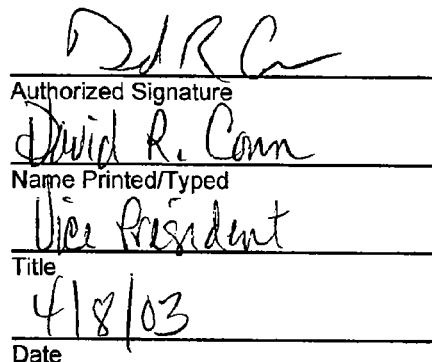 Dd R C
Authorized Signature
David R. Conn
Name Printed/Typed
Vice President
Title
4/8/03
Date